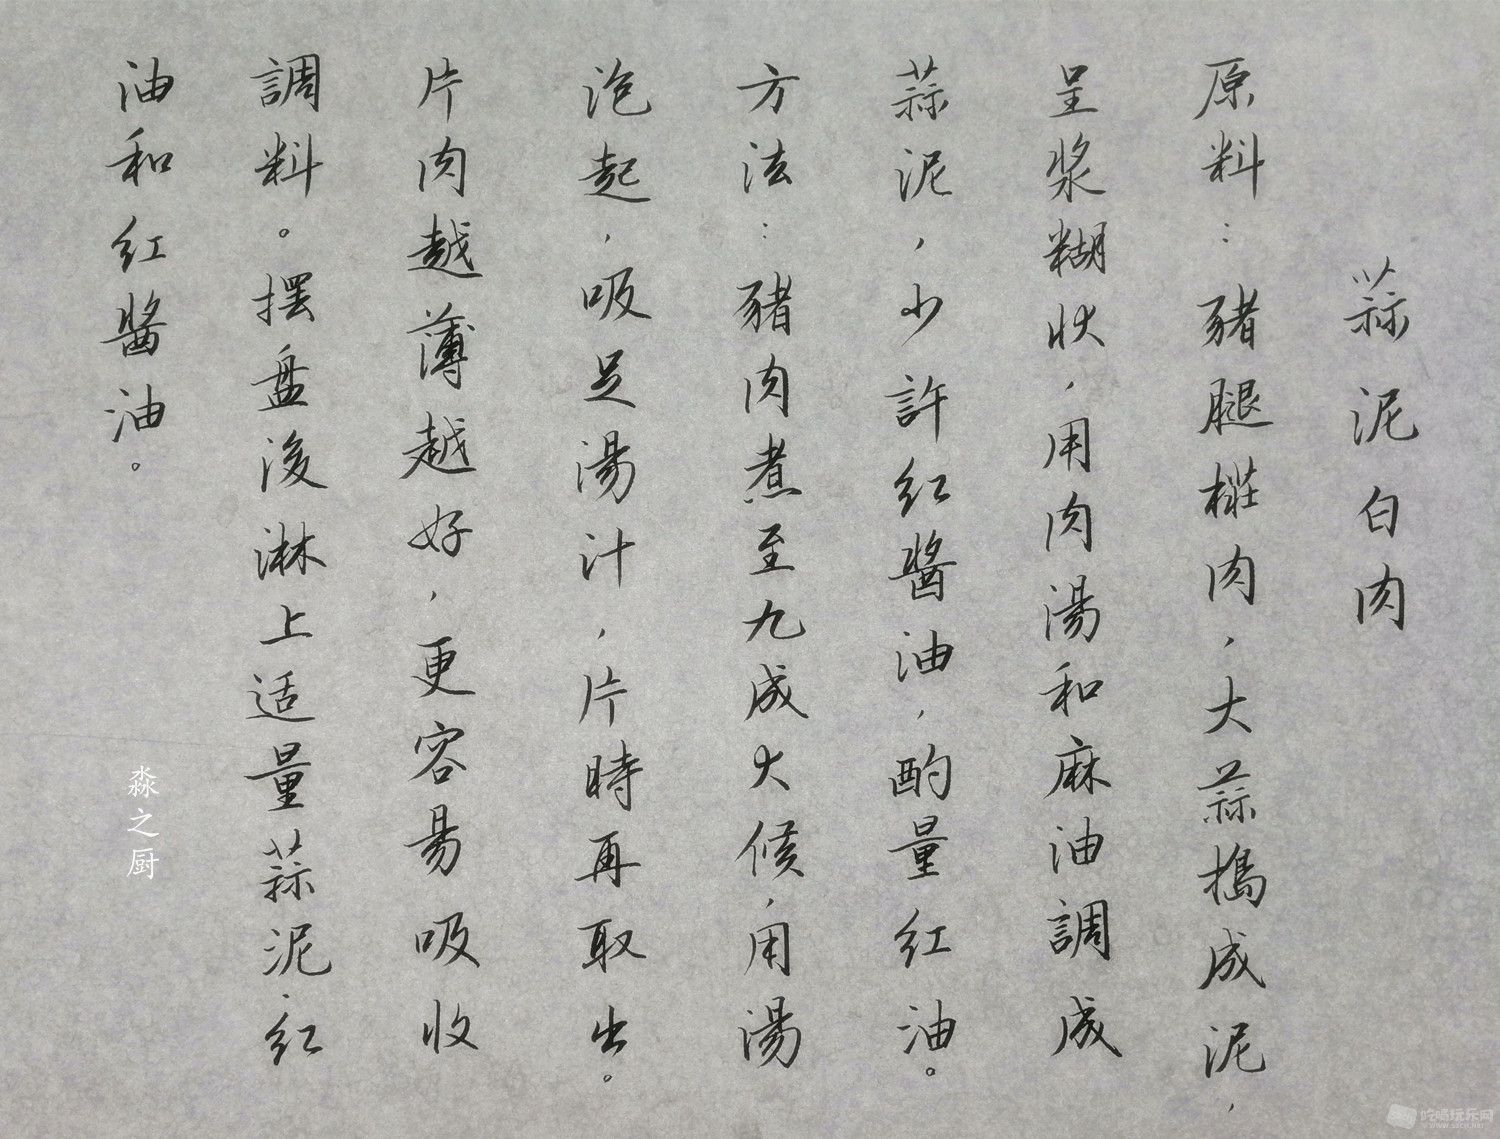 蒜泥白肉
原料：豬腿樁肉，大蒜搗成泥，
呈漿糊狀，用肉湯和麻油調成
蒜泥，少許紅醬油，酌量紅油。
方法：豬肉煮至九成火候，用湯
泡起，吸足湯汁，片時再取出。
片肉越薄越好，更容易吸收
調料。摆盘後淋上适量蒜泥、紅
油和紅醬油。
淼之厨
吃喝玩乐网